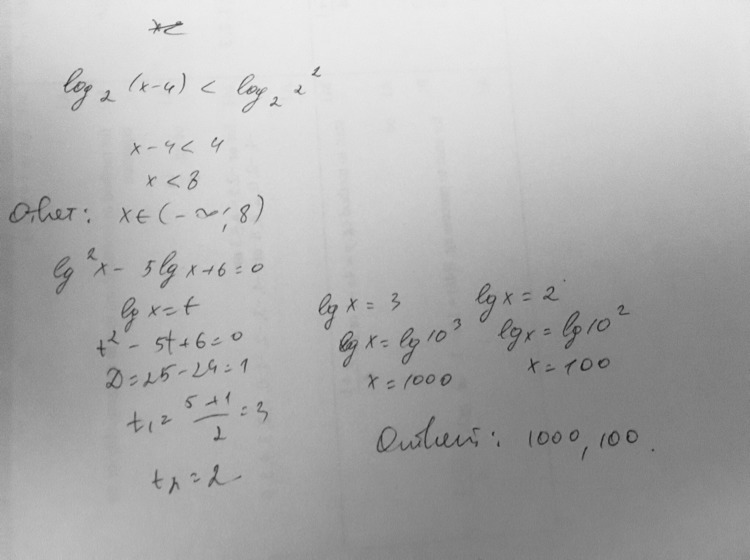 log₂ (x-4) < log₂ 2²
x - 4 < 4
x < 8
Ответ: x ∈ (-∞; 8)
lg²x - 5lg x + 6 = 0
lg x = t
t² - 5t + 6 = 0
D = 25 - 24 = 1
t₁ = (5+1)/2 = 3
t₂ = 2
lg x = 3
lg x = lg 10³
x = 1000
lg x = 2
lg x = lg 10²
x = 100
Ответ: 1000, 100.